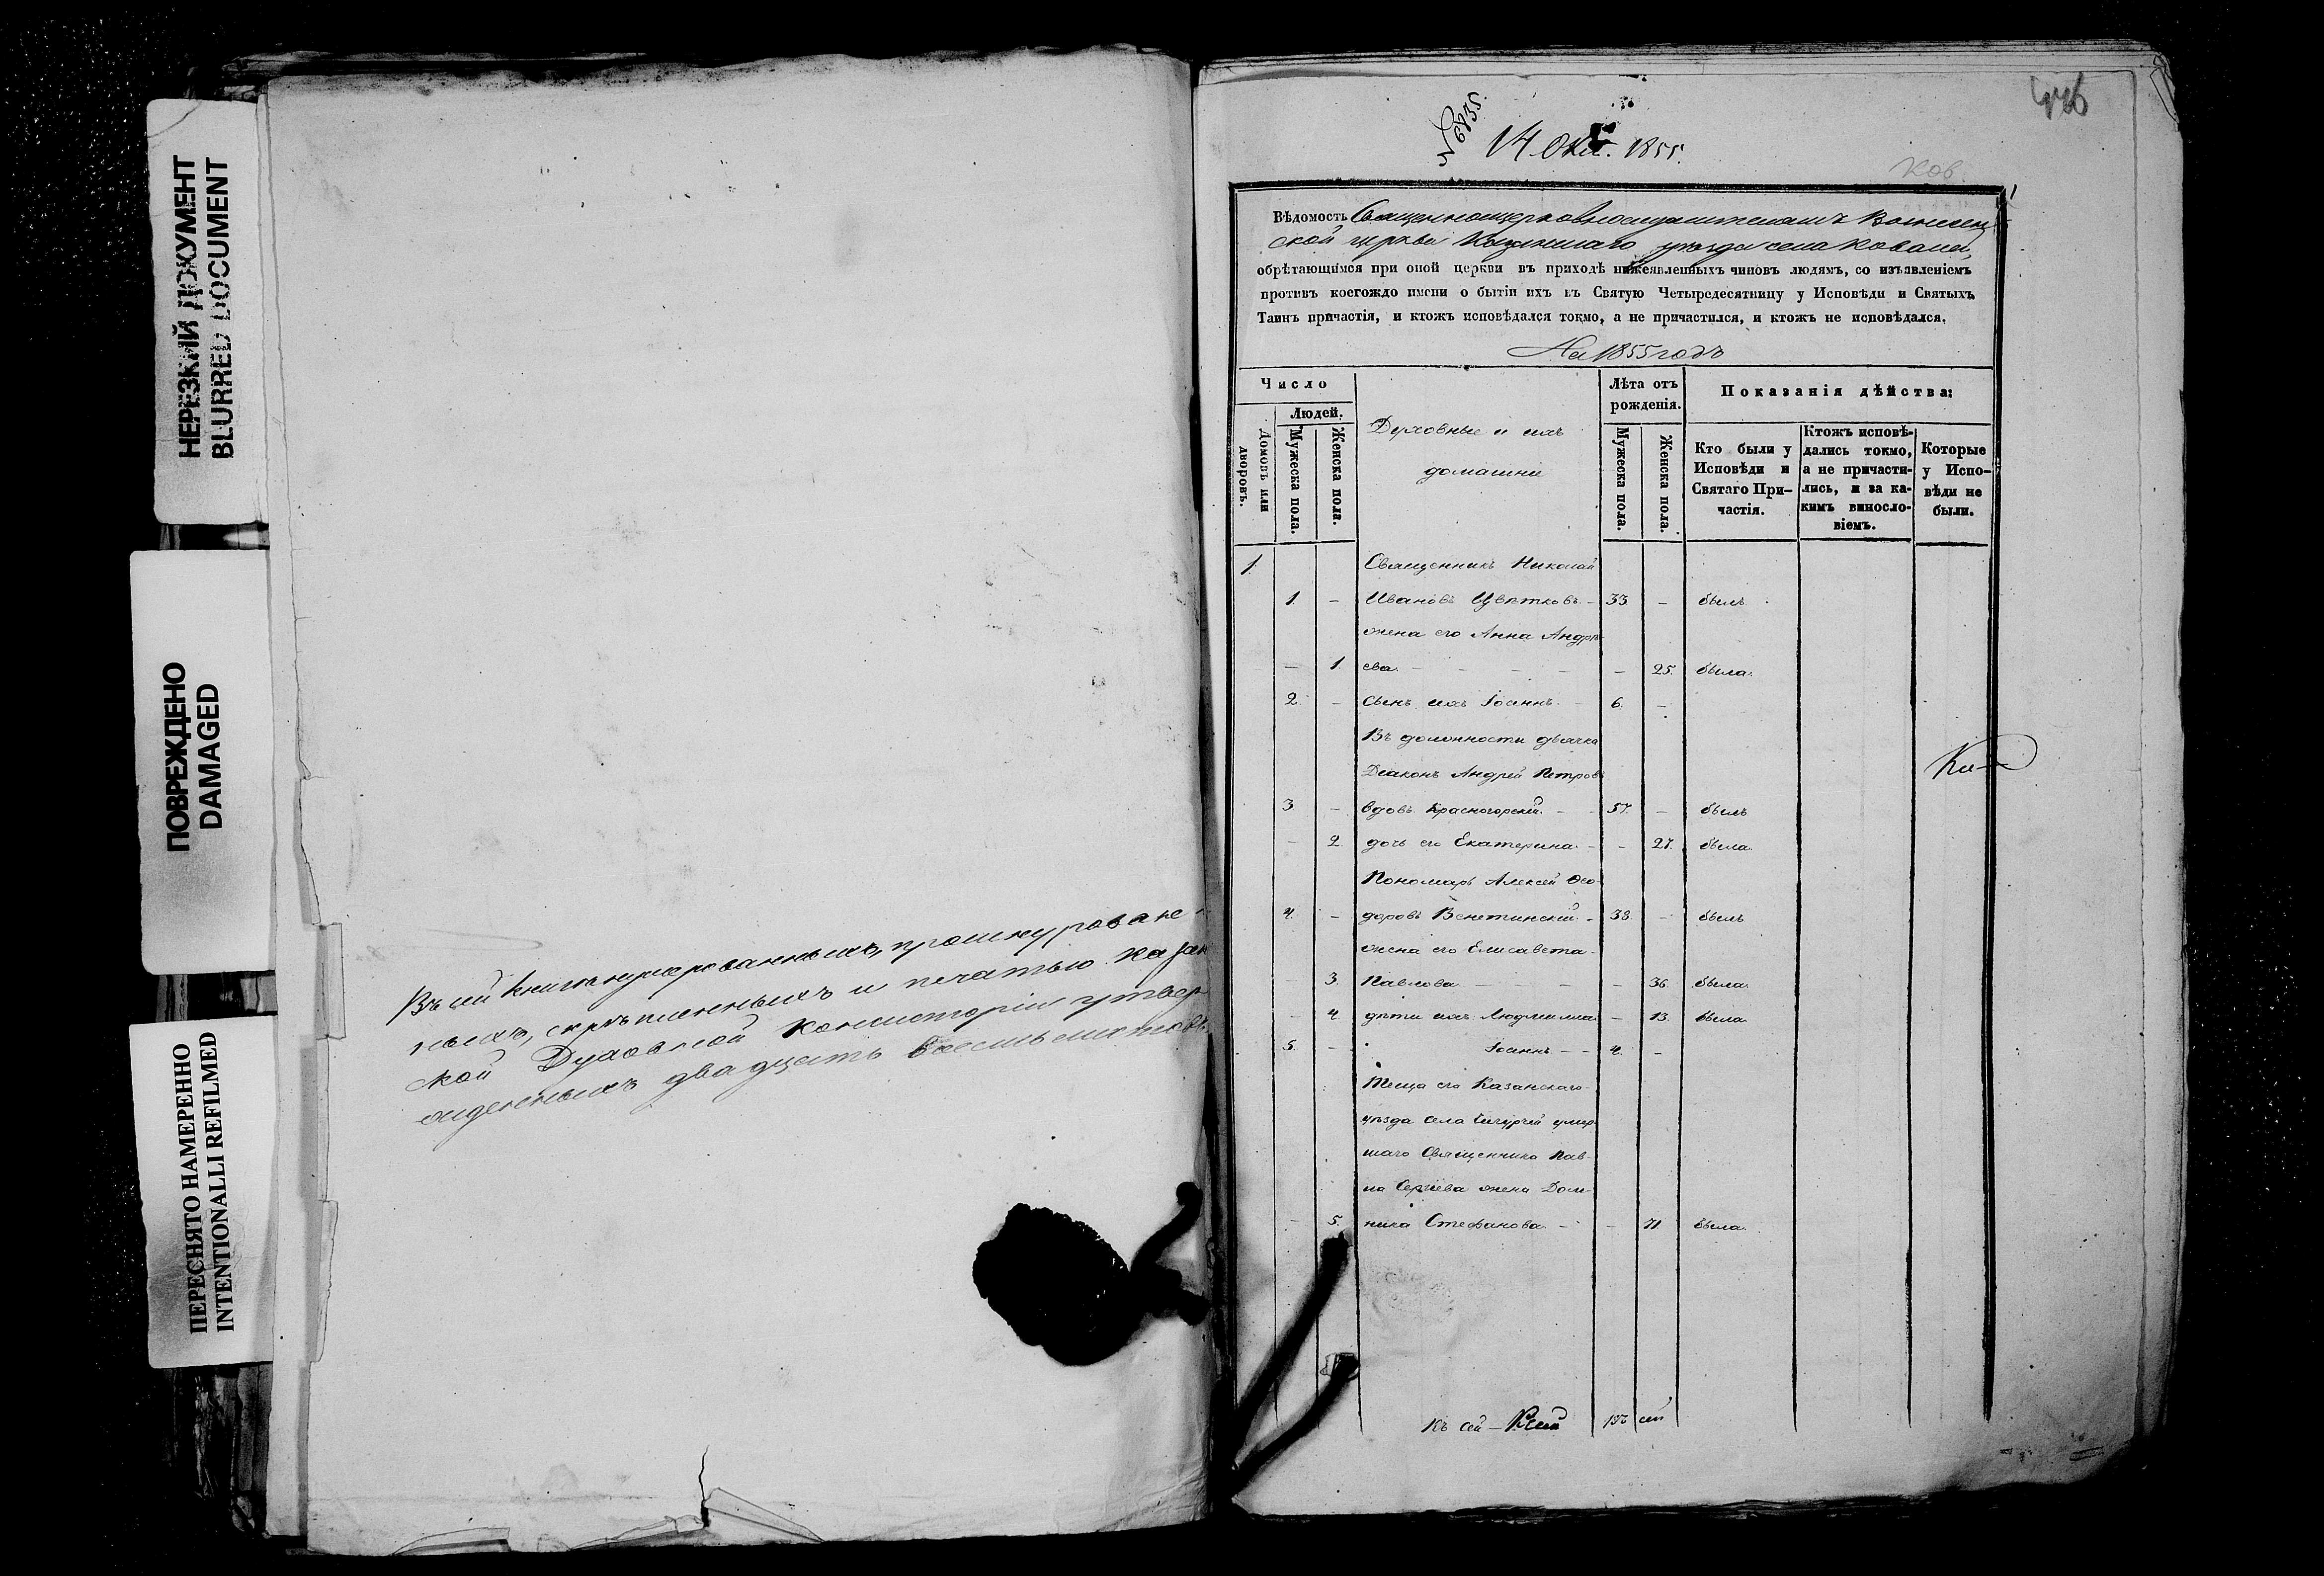 НЕРЕЗКИЙ ДОКУМЕНТ
BLURRED DOCUMENT
ПОВРЕЖДЕНО
DAMAGED
ПЕРЕСНЯТО НАМЕРЕННО
INTENTIONALLI REFILMED
Въ сей книгѣ нумерованныхъ, прошнурован
ныхъ, скрѣпленныхъ и печатью Казан
ской Духовной Консисторіи утвер
жденныхъ двадцать восемь листовъ
№ 6835.
14 Окт. 1855.
Ков.
1
Вѣдомость Священноцерковнослужителямъ Вознесен
ской церкви Казанскаго уѣзда села Ковалей,
обрѣтающимся при оной церкви въ приходѣ нижеявленныхъ чиновъ людямъ, со изъявленіемъ
противъ коегождо имени о бытіи ихъ въ Святую Четыредесятницу у Исповѣди и Святыхъ
Таинъ причастія, и ктожъ исповѣдался токмо, а не причастился, и ктожъ не исповѣдался.
На 1855 годъ
Число
Людей.
Домовъ или дворовъ.
Мужеска пола.
Женска пола.
Духовные и ихъ
домашніе
Лѣта отъ рожденія.
Мужеска пола.
Женска пола.
Показанія дѣйства:
Кто были у Исповѣди и Святаго При-частія.
Ктожъ исповѣ-дались токмо, а не причасти-лись, и за ка-кимъ винословіемъ.
Которые у Испо-вѣди не были.
1. Священникъ Николай
1. – Ивановъ Цвѣтковъ – 33 – былъ
жена его Анна Андре
– 1. ева. – – – – – 25. была.
2. – Сынъ ихъ Іоаннъ – 6. –
Въ должности дьячка
Діаконъ Андрей Петровъ
3 – вдовъ Красногорскій. – 57. – былъ
– 2. дочь его Екатерина – – 27. была.
Пономарь Алексѣй Ѳео
4. – доровъ Венетинскій – 38. – былъ
жена его Елисавета
– 3. Павлова – – – – 36. была.
– 4. дѣти ихъ: Людмилла – 13. была
5. – Іоаннъ – – 4. –
Теща его Казанскаго
уѣзда села умер
шаго Священника Пав
ла Сергіева жена Дом
– 5. ника Стефанова – – 71 была.
Къ сей –